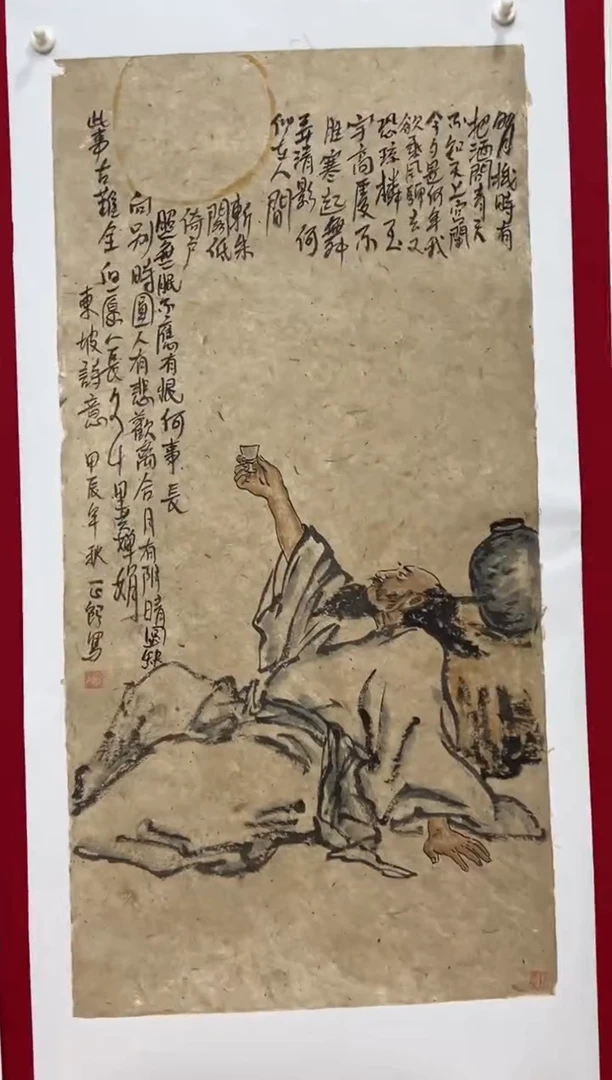 明月幾時有
把酒問青天
不知天上宮闕
今夕是何年我
欲乘風歸去又
恐琼樓玉
宇高處不
胜寒起舞
弄清影何
似在人間
朱
閣低
倚户
照無眠不應有恨何事長
向别時圓人有悲歡離合月有阴晴圆缺
此事古難全但願人長久千里共嬋娟
東坡詩意 甲辰年秋 正寫